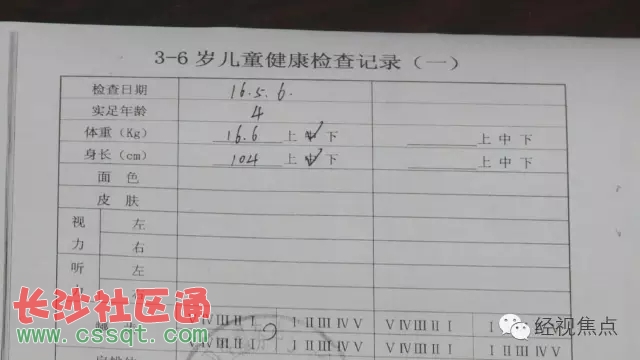 3-6 岁儿童健康检查记录（一）
检查日期 16.5.6.
实足年龄 4
体重（Kg） 16.6 上 中 下 上 中 下
身长（cm） 104 上 中 下 上 中 下
面色
皮肤
视力 左
右
听 左
长沙社区通
www.cssqt.com
V Ⅳ Ⅲ Ⅱ Ⅰ Ⅰ Ⅱ Ⅲ Ⅳ V V Ⅳ Ⅲ Ⅱ Ⅰ Ⅰ
经视焦点